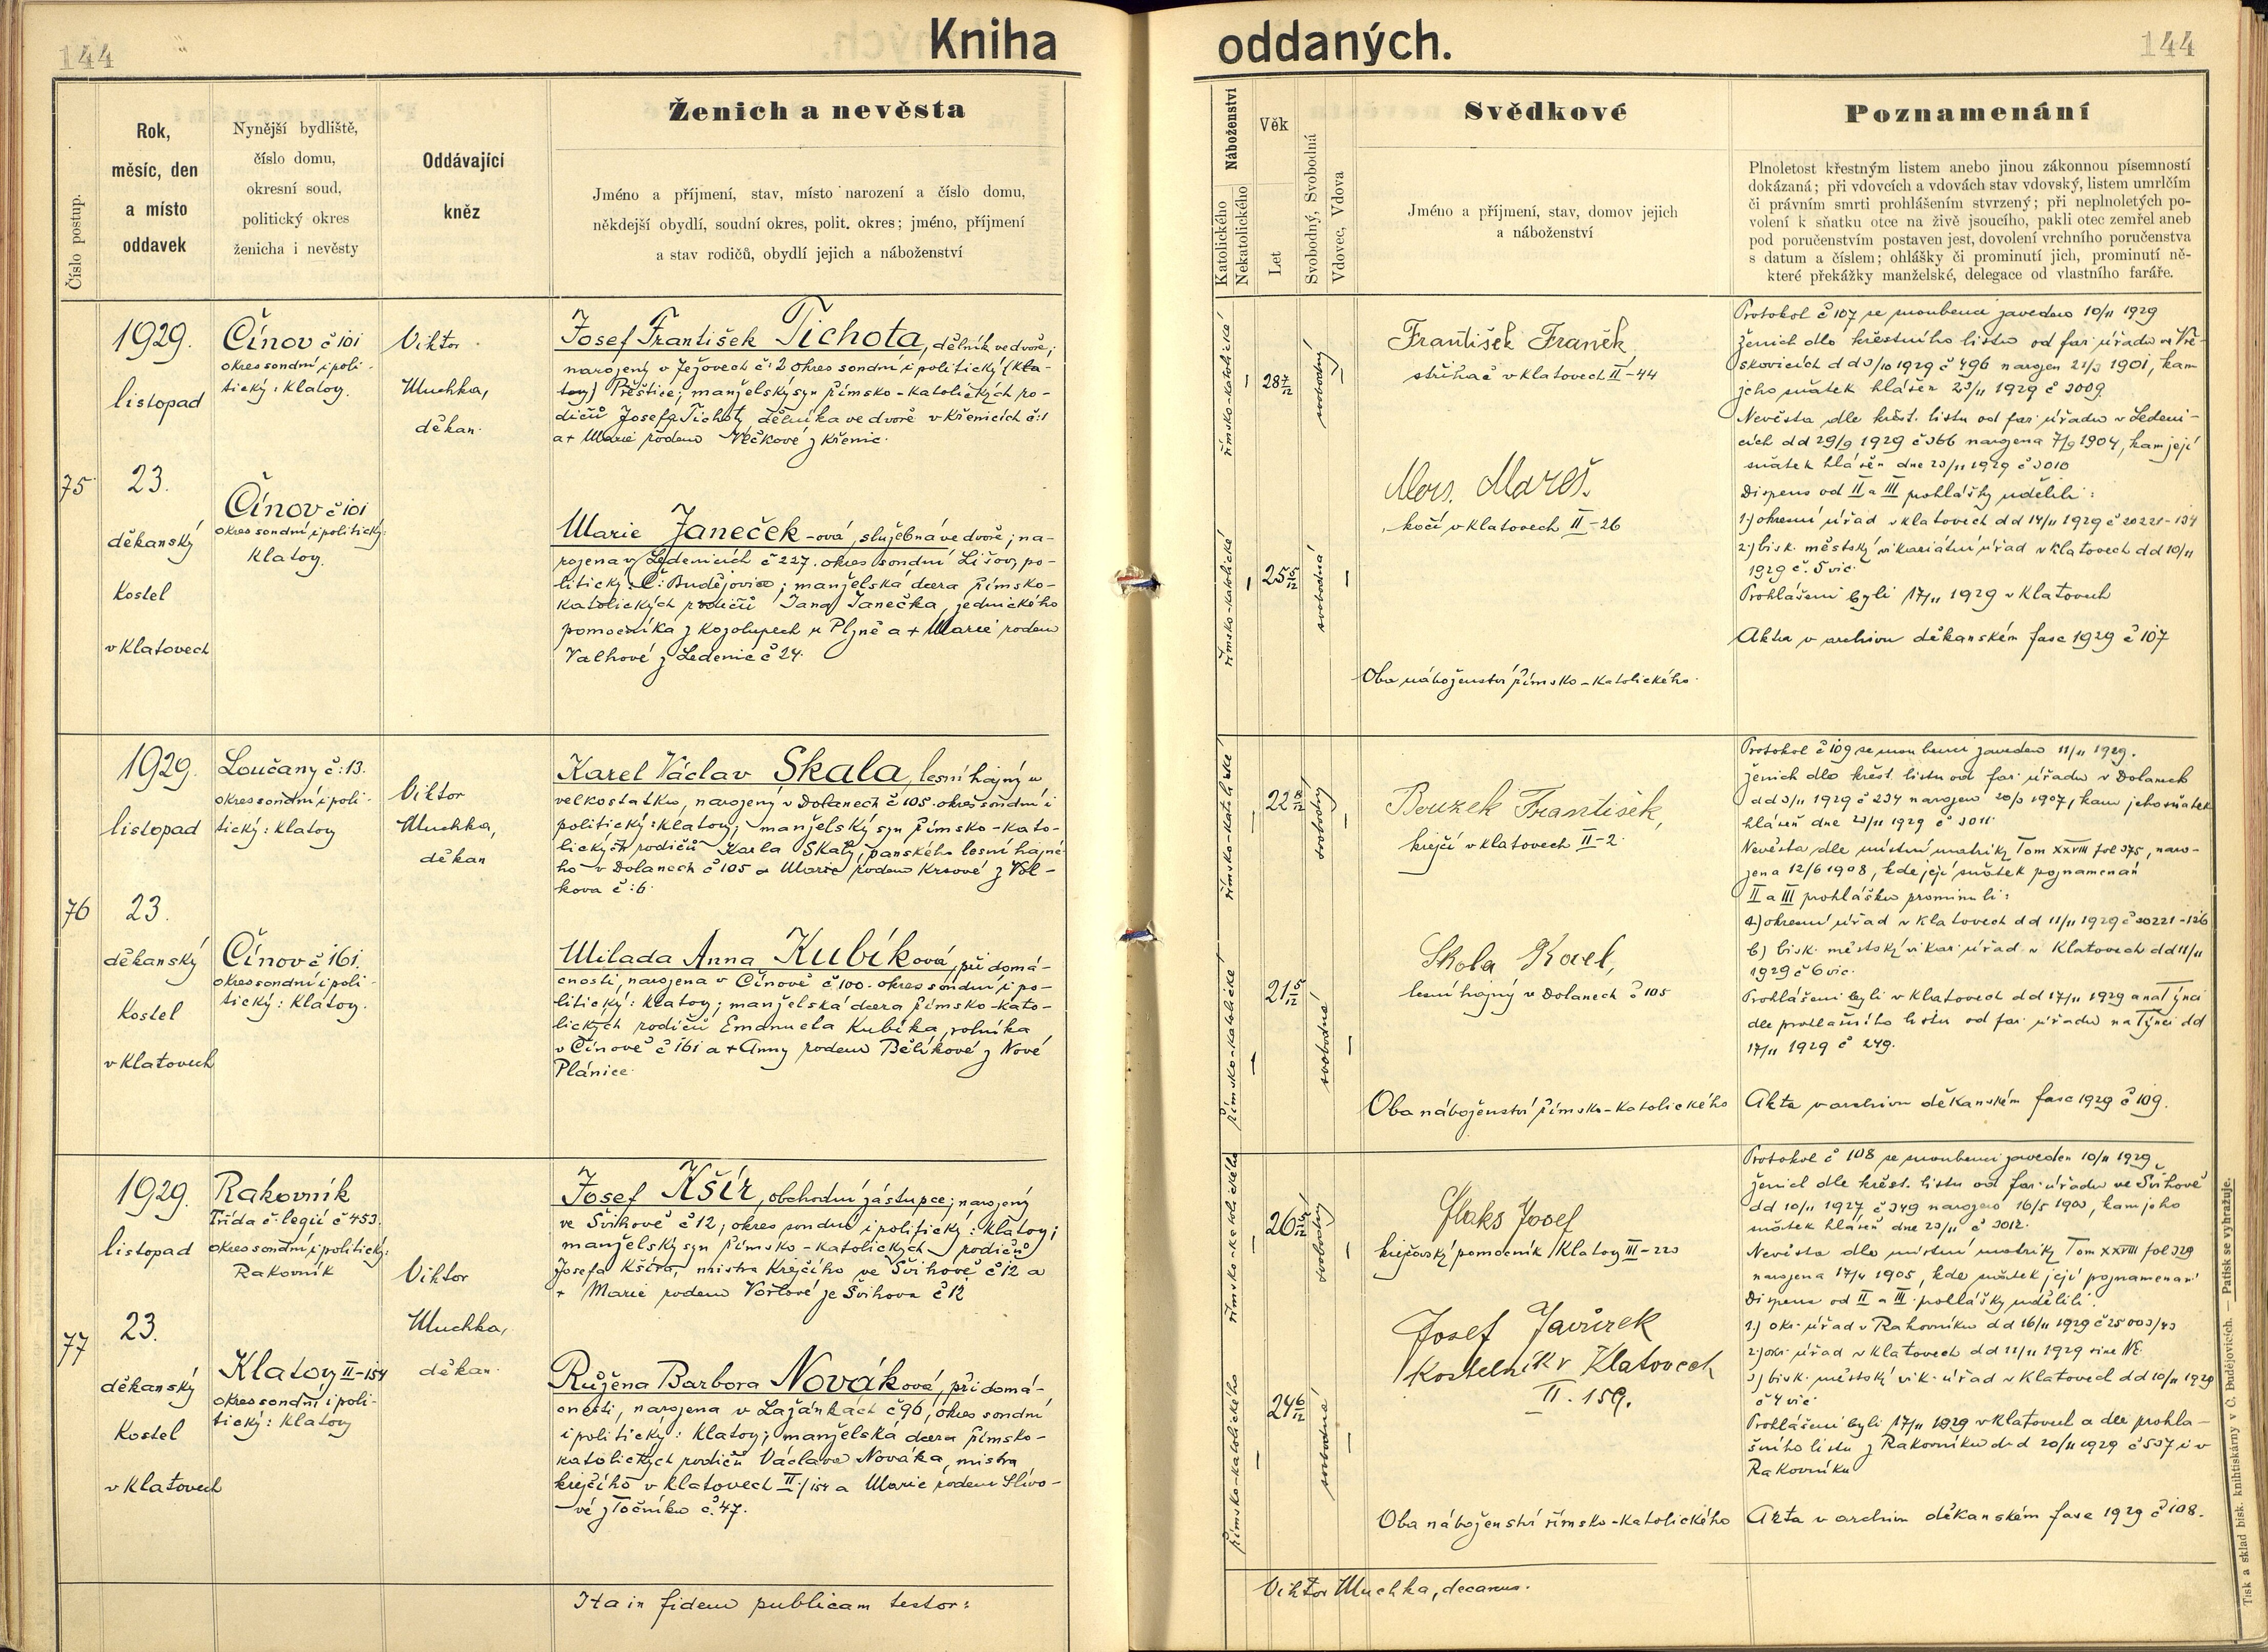 144
Kniha oddaných.
144
Číslo postup.
Rok,
měsíc, den
a místo
oddavek
Nynější bydliště,
číslo domu,
okresní soud,
politický okres
ženicha i nevěsty
Oddávající
kněz
Ženich a nevěsta
Jméno a příjmení, stav, místo narození a číslo domu,
někdejší obydlí, soudní okres, polit. okres; jméno, příjmení
a stav rodičů, obydlí jejich a náboženství
Náboženství
Katolického
Nekatolického
Věk
Let
Svobodný, Svobodná
Vdovec, Vdova
Svědkové
Jméno a příjmení, stav, domov jejich
a náboženství
Poznamenání
Plnoletost křestným listem anebo jinou zákonnou písemností
dokázaná; při vdovcích a vdovách stav vdovský, listem umrlčím
či právním smrti prohlášením stvrzený; při neplnoletých po-
volení k sňatku otce na živě jsoucího, pakli otec zemřel aneb
pod poručenstvím postaven jest, dovolení vrchního poručenstva
s datum a číslem; ohlášky či prominutí jich, prominutí ně-
které překážky manželské, delegace od vlastního faráře.
75
1929.
listopad
23.
děkanský
Kostel
v Klatovech
Činov č 101
okres soudní i poli-
tický: Klatovy.
Činov č 101
okres soudní i politický:
Klatovy.
Viktor
Muchka,
děkan.
Josef František Tichota, dělník ve dvoře;
narozený v Ježovech č: 2 okres soudní i politický (Kla-
tovy) Přeštice; manželský syn římsko-katolických ro-
dičů Josefa Tichoty dělníka ve dvoře v Křenicích č:1
a + Marie rodem Věčkové z Křenic.
Marie Janeček-ová, služebná ve dvoře; na-
rozena v Ledenicích č 227. okres soudní Lišov, po-
litický: Č: Budějovice; manželská dcera římsko-
katolických rodičů Jana Janečka, zednického
pomocníka z Kozolupech u Plzně a + Marie rodem
Valhové z Ledenic č 24.
římsko-katolické
28 7/12
svobodný
římsko-katolické
25 2/12
svobodná
František Franěk
střihač v Klatovech II-44
Mareš.
kočí v Klatovech II-26
Oba náboženství římsko-katolického.
Protokol č 107 se snoubenci zaveden 10/11 1929
Ženich dle křestního listu od far. úřadu ve Vře-
skovicích dd 3/10 1929 č 496 narozen 21/3 1901, kam
jeho sňatek hlášen 23/11 1929 č 3009.
Nevěsta dle křest. listu od far. úřadu v Ledeni-
cích dd 29/9 1929 č 366 narozena 7/9 1904, kam její
sňatek hlášen dne 23/11 1929 č 3010
Dispens od II a III prohlášky udělili:
1.) okresní úřad v Klatovech dd 14/11 1929 č 20221-134
2.) bisk. městský vikariátní úřad v Klatovech dd 10/11
1929 č. 5 vic.
Prohlášeni byli 17/11 1929 v Klatovech
Akta v archivu děkanském fasc 1929 č 107
76
1929.
listopad
23.
děkanský
Kostel
v Klatovech
Loučany č: 13.
okres soudní i poli-
tický: Klatovy
Činov č 161.
okres soudní i poli-
tický: Klatovy.
Viktor
Muchka,
děkan
Karel Václav Skala, lesní hajný u
velkostatku, narozený v Dolanech č 105. okres soudní i
politický: Klatovy; manželský syn římsko-kato-
lických rodičů Karla Skaly, panského lesní hajné-
ho v Dolanech č 105 a Marie rodem Krsové z Vol-
kova č: 6.
Milada Anna Kubíková, při domá-
cnosti, narozena v Činově č 100. okres soudní i po-
litický: Klatovy; manželská dcera římsko-kato-
lických rodičů Emanuela Kubíka, rolníka
v Činově č 161 a + Anny rodem Bělíkové z Nové
Plánice.
římsko-katolické
22 8/12
svobodný
římsko-katolické
21 5/12
svobodná
Bouzek František,
krejčí v Klatovech II-2.
Skala Karel,
lesní hajný v Dolanech č 105
Oba náboženství římsko-katolického
Protokol č 109 se snoubenci zaveden 11/11 1929.
Ženich dle křest. listu od far. úřadu v Dolanech
dd 3/11 1929 č 234 narozen 20/3 1907, kam jeho sňatek
hlášen dne 23/11 1929 č 3011.
Nevěsta dle místní matriky Tom XXVIII fol 375, naro-
zena 12/6 1908, kde její sňatek poznamenán
II a III prohlášku prominuli:
a) okresní úřad v Klatovech dd 11/11 1929 č 20221-126
b) bisk. městský vikar. úřad v Klatovech dd 11/11
1929 č 6 vic.
Prohlášeni byli v Klatovech dd 17/11 1929 a na Týnci
dle prohlašního listu od far. úřadu na Týnci dd
17/11 1929 č 249.
Akta v archivu děkanském fasc 1929 č 109.
77
1929.
listopad
23.
děkanský
Kostel
v Klatovech
Rakovník
Třída č. legií č 453.
okres soudní i politický:
Rakovník
Klatovy II-154
okres soudní i poli-
tický: Klatovy
Viktor
Muchka,
děkan.
Josef Kšír, obchodní zástupce; narozený
ve Švihově č 12; okres soudní i politický: Klatovy;
manželský syn římsko-katolických rodičů
Josefa Kšíra, mistra krejčího ve Švihově č 12 a
+ Marie rodem Vořlové ze Švihova č 12
Růžena Barbora Nováková, při domá-
cnosti, narozena v Lažánkách č 96, okres soudní
i politický: Klatovy; manželská dcera římsko-
katolických rodičů Václava Nováka, mistra
krejčího v Klatovech II./154 a Marie rodem Slívo-
vé z Točníku č. 47.
římsko-katolického
26 6/12
svobodný
římsko-katolického
24 6/12
svobodná
Flaks Josef
krejčovský pomocník Klatovy III-223
Josef Javůrek
Kostelník v Klatovech
II. 159.
Oba náboženství římsko-katolického
Protokol č 108 se snoubenci zaveden 10/11 1929
Ženich dle křest. listu od far. úřadu ve Švihově
dd 10/11 1927 č 349 narozen 16/5 1903, kam jeho
sňatek hlášen dne 23/11 č 3012.
Nevěsta dle místní matriky Tom XXVIII fol 329
narozena 17/4 1905, kde sňatek její poznamenán
Dispens od II a III. prohlášky udělili:
1.) okr. úřad v Rakovníku dd 16/11 1929 č 25003/43
2.) okr. úřad v Klatovech dd 11/11 1929 sine №
3) bisk. městský vik. úřad v Klatovech dd 10/11 1929
č 4 vic
Prohlášeni byli 17/11 1929 v Klatovech a dle prohla-
šního listu z Rakovníku dd 20/11 1929 č 537 i v
Rakovníku
Akta v archivu děkanském fasc 1929 č 108.
Ita in fidem publicam testor:
Viktor Muchka, decanus.
Tisk a sklad bisk. knihtiskárny v Č. Budějovicích. — Patisk se vyhražuje.